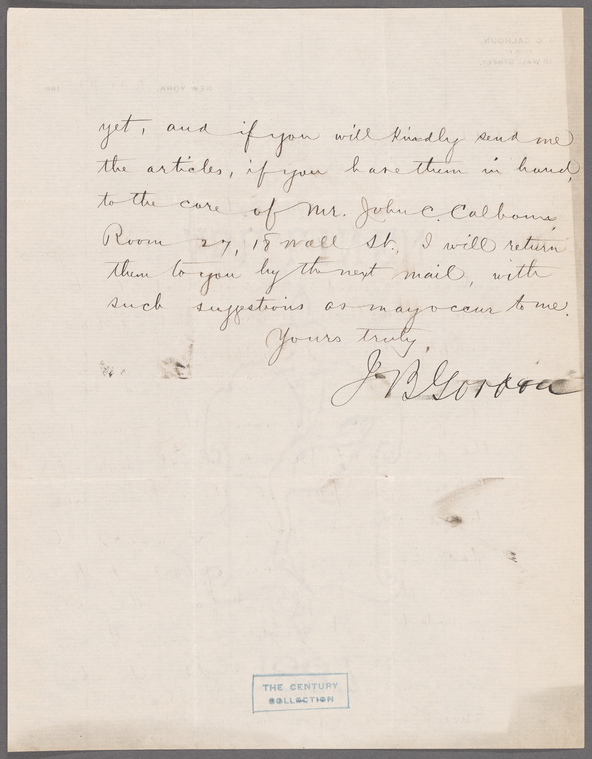 yet, and if you will kindly send me
the articles, if you have them in hand,
to the care of Mr. John C. Calhoun,
Room 27, 18 Wall St., I will return
them to you by the next mail, with
such suggestions as may occur to me.
Yours truly,
J B Gordon
THE CENTURY
COLLECTION